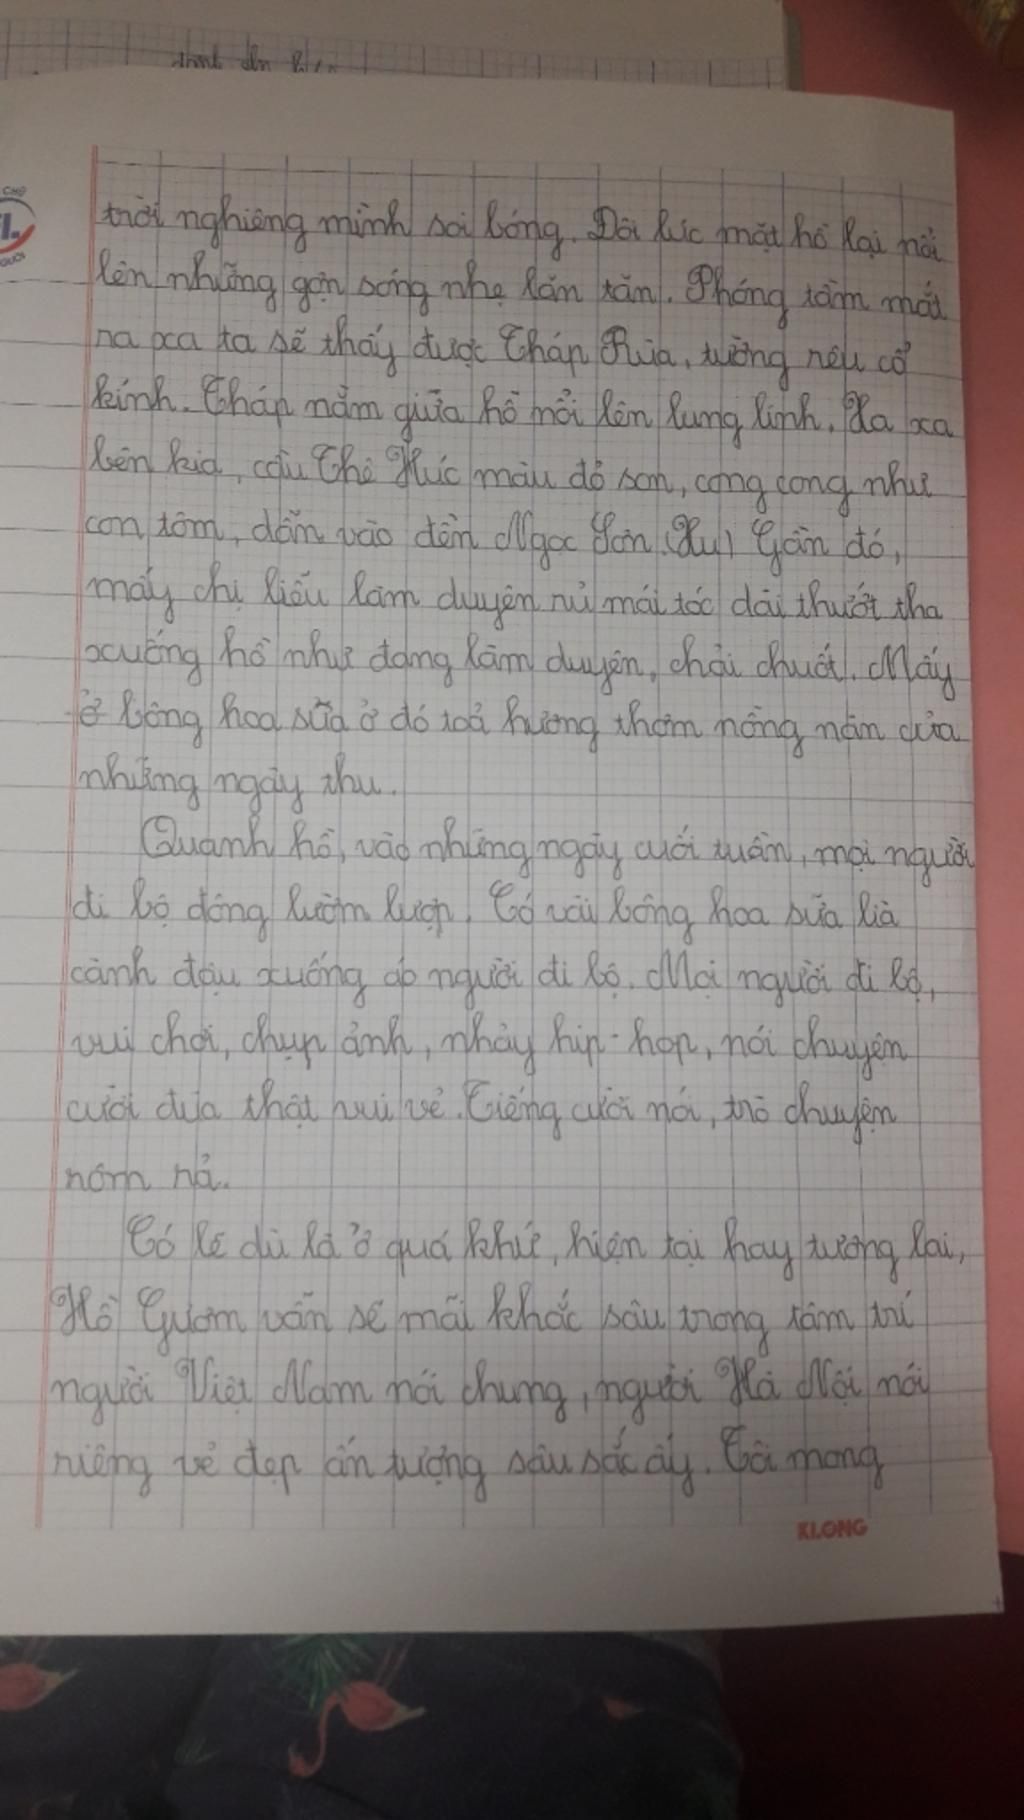 trời nghiêng mình soi bóng. Đôi lúc mặt hồ lại nổi
lên những gợn sóng nhẹ lăn tăn. Phóng tầm mắt
ra xa ta sẽ thấy được Tháp Rùa, tường rêu cổ
kính. Tháp nằm giữa hồ nổi lên lung linh. Xa xa
bên kia, cầu Thê Húc màu đỏ son, cong cong như
con tôm, dẫn vào đền Ngọc Sơn. Gần đó,
mấy chị liễu làm duyên rủ mái tóc dài thướt tha
xuống hồ như đang làm duyên, chải chuốt. Mấy
bông hoa sữa ở đó toả hương thơm nồng nàn của
những ngày thu.
Quanh hồ, vào những ngày cuối tuần, mọi người
đi bộ đông lườm lượp. Có vài bông hoa sữa lìa
cành đậu xuống áo người đi bộ. Mọi người đi bộ,
vui chơi, chụp ảnh, nhảy hip-hop, nói chuyện
cười đùa thật vui vẻ. Tiếng cười nói, trò chuyện
nóm nả.
Có lẽ dù là ở quá khứ, hiện tại hay tương lai,
Hồ Gươm vẫn sẽ mãi khắc sâu trong tâm trí
người Việt Nam nói chung, người Hà Nội nói
riêng vẻ đẹp ấn tượng sâu sắc ấy. Tôi mong
KLONG